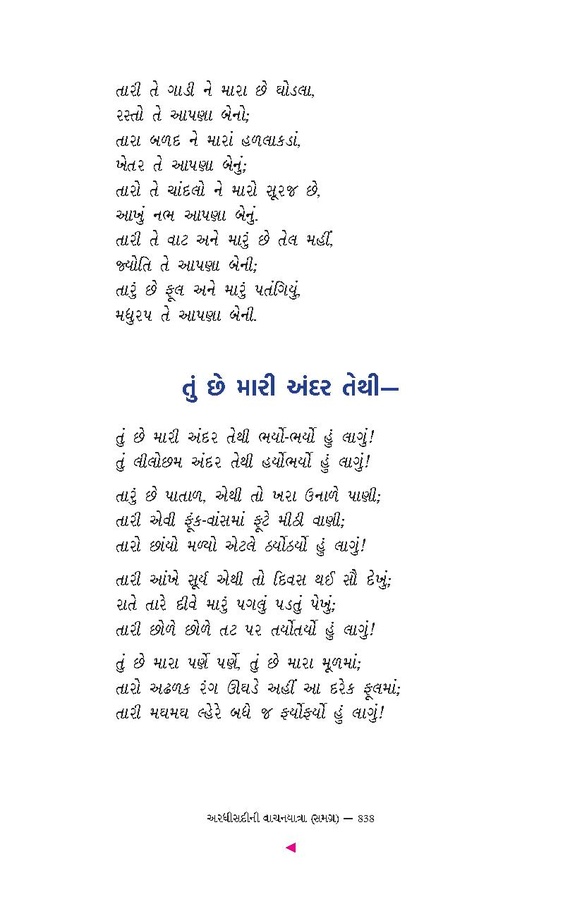 તારી તે ગાડી ને મારા છે ઘોડલા,
રસ્તો તે આપણા બેનો;
તારા બળદ ને મારાં હળલાકડાં,
ખેતર તે આપણા બેનું;
તારો તે ચાંદલો ને મારો સૂરજ છે,
આખું નભ આપણા બેનું.
તારી તે વાટ અને મારું છે તેલ મહીં,
જ્યોતિ તે આપણા બેની;
તારું છે ફૂલ અને મારું પતંગિયું,
મધુરપ તે આપણા બેની.
તું છે મારી અંદર તેથી—
તું છે મારી અંદર તેથી ભર્યો-ભર્યો હું લાગું!
તું લીલોછમ અંદર તેથી હર્યોભર્યો હું લાગું!
તારું છે પાતાળ, એથી તો ખરા ઉનાળે પાણી;
તારી એવી ફૂંક-વાંસમાં ફૂટે મીઠી વાણી;
તારો છાંયો મળ્યો એટલે ઠર્યોઠર્યો હું લાગું!
તારી આંખે સૂર્ય એથી તો દિવસ થઈ સૌ દેખું;
રાતે તારે દીવે મારું પગલું પડતું પેખું;
તારી છોળે છોળે તટ પર તર્યોતર્યો હું લાગું!
તું છે મારા પર્ણે પર્ણે, તું છે મારા મૂળમાં;
તારો અઢળક રંગ ઊઘડે અહીં આ દરેક ફૂલમાં;
તારી મઘમઘ લ્હેરે બધે જ ફર્યોફર્યો હું લાગું!
અરધીસદીની વાચનયાત્રા (સમગ્ર) — 838